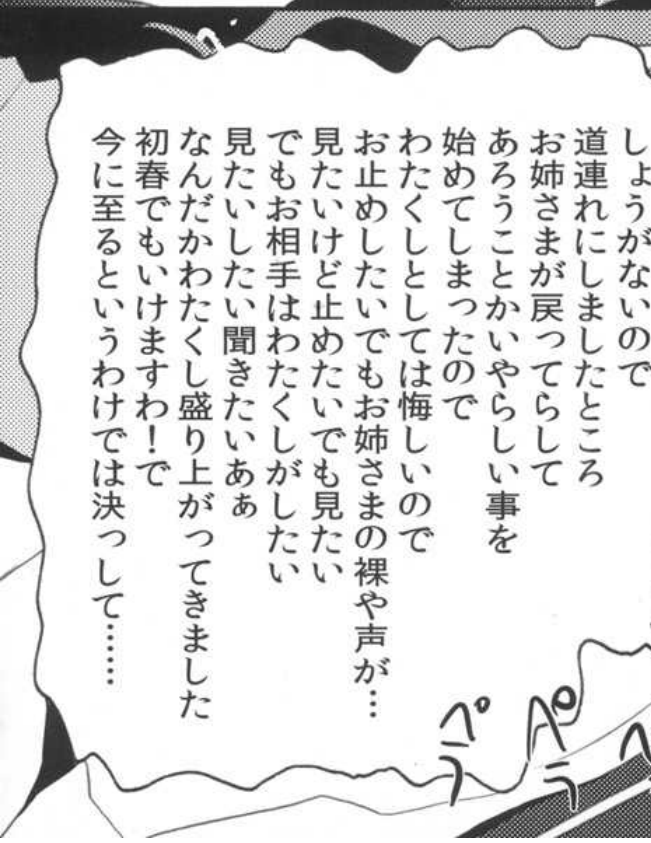 しょうがないので
道連れにしましたところ
お姉さまが戻ってらして
あろうことかいやらしい事を
始めてしまったので
わたくしとしては悔しいので
お止めしたいでもお姉さまの裸や声が…
見たいけど止めたいでも見たい
でもお相手はわたくしがしたい
見たいしたい聞きたいあぁ
なんだかわたくし盛り上がってきました
初春でもいけますわ！で
今に至るというわけでは決っして……
ペラ
ペラ